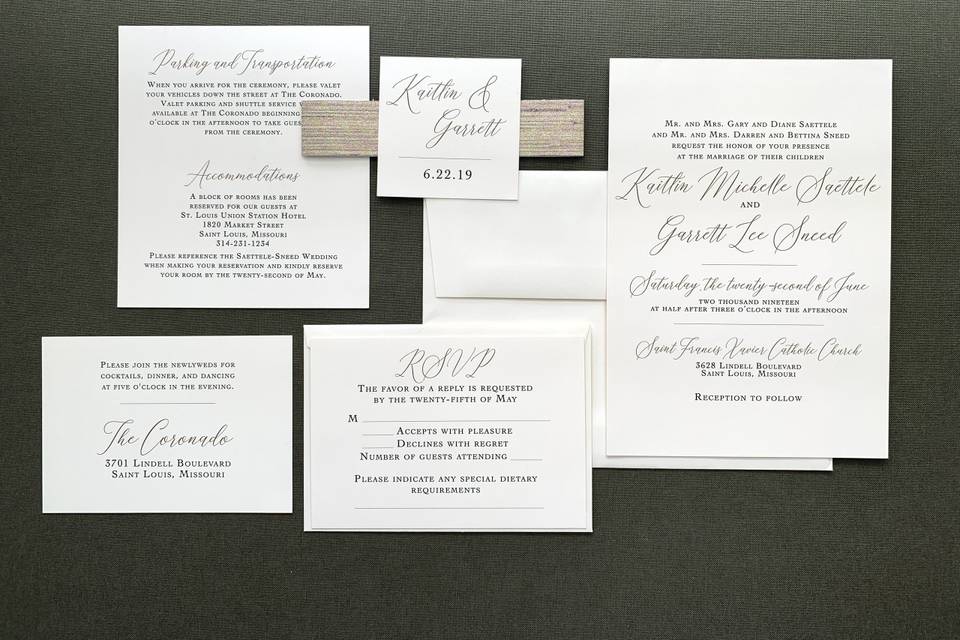 Parking and Transportation
When you arrive for the ceremony, please valet
your vehicles down the street at The Coronado.
Valet parking and shuttle service
available at The Coronado beginning
o'clock in the afternoon to take
from the ceremony.
Accommodations
A block of rooms has been
reserved for our guests at
St. Louis Union Station Hotel
1820 Market Street
Saint Louis, Missouri
314-231-1234
Please reference the Saettele-Sneed Wedding
when making your reservation and kindly reserve
your room by the twenty-second of May.
Kaitlin &
Garrett
6.22.19
Mr. and Mrs. Gary and Diane Saettele
and Mr. and Mrs. Darren and Bettina Sneed
request the honor of your presence
at the marriage of their children
Kaitlin Michelle Saettele
and
Garrett Lee Sneed
Saturday, the twenty-second of June
two thousand nineteen
at half after three o'clock in the afternoon
Saint Francis Xavier Catholic Church
3628 Lindell Boulevard
Saint Louis, Missouri
Reception to follow
Please join the newlyweds for
cocktails, dinner, and dancing
at five o'clock in the evening.
The Coronado
3701 Lindell Boulevard
Saint Louis, Missouri
RSVP
The favor of a reply is requested
by the twenty-fifth of May
M
Accepts with pleasure
Declines with regret
Number of guests attending
Please indicate any special dietary
requirements